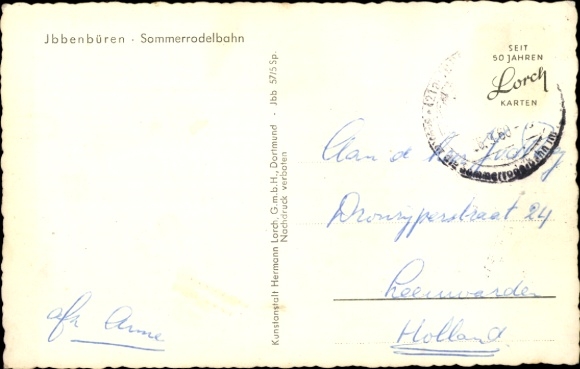 Jbbenbüren · Sommerrodelbahn
SEIT
50 JAHREN
Lorch
KARTEN
Kunstanstalt Hermann Lorch, G.m.b.H., Dortmund · Jbb 57/5 Sp.
Nachdruck verboten
Sommerrodelbahn
Aan de
Dronrijperstraat 24
Leeuwarden
Holland
afz Anne